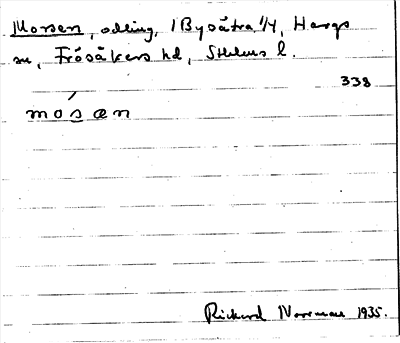 Morsen, odling, 1 Bysätra 1/4, Hargs
sn, Frösåkers hd, Sthlms l.
338
mósæn
Rickard Norrman 1935.